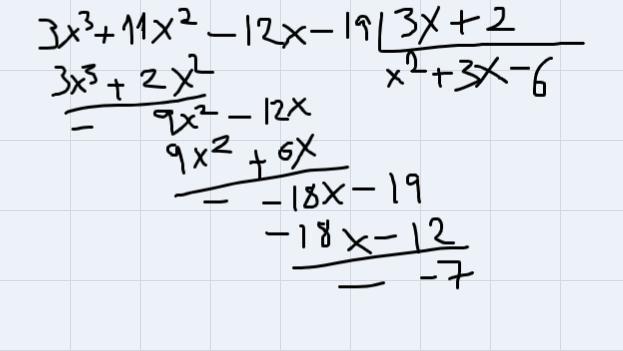 3x³+11x²-12x-19 3x+2
3x³+2x² x²+3x-6
- 9x²-12x
9x²+6x
- -18x-19
-18x-12
- -7